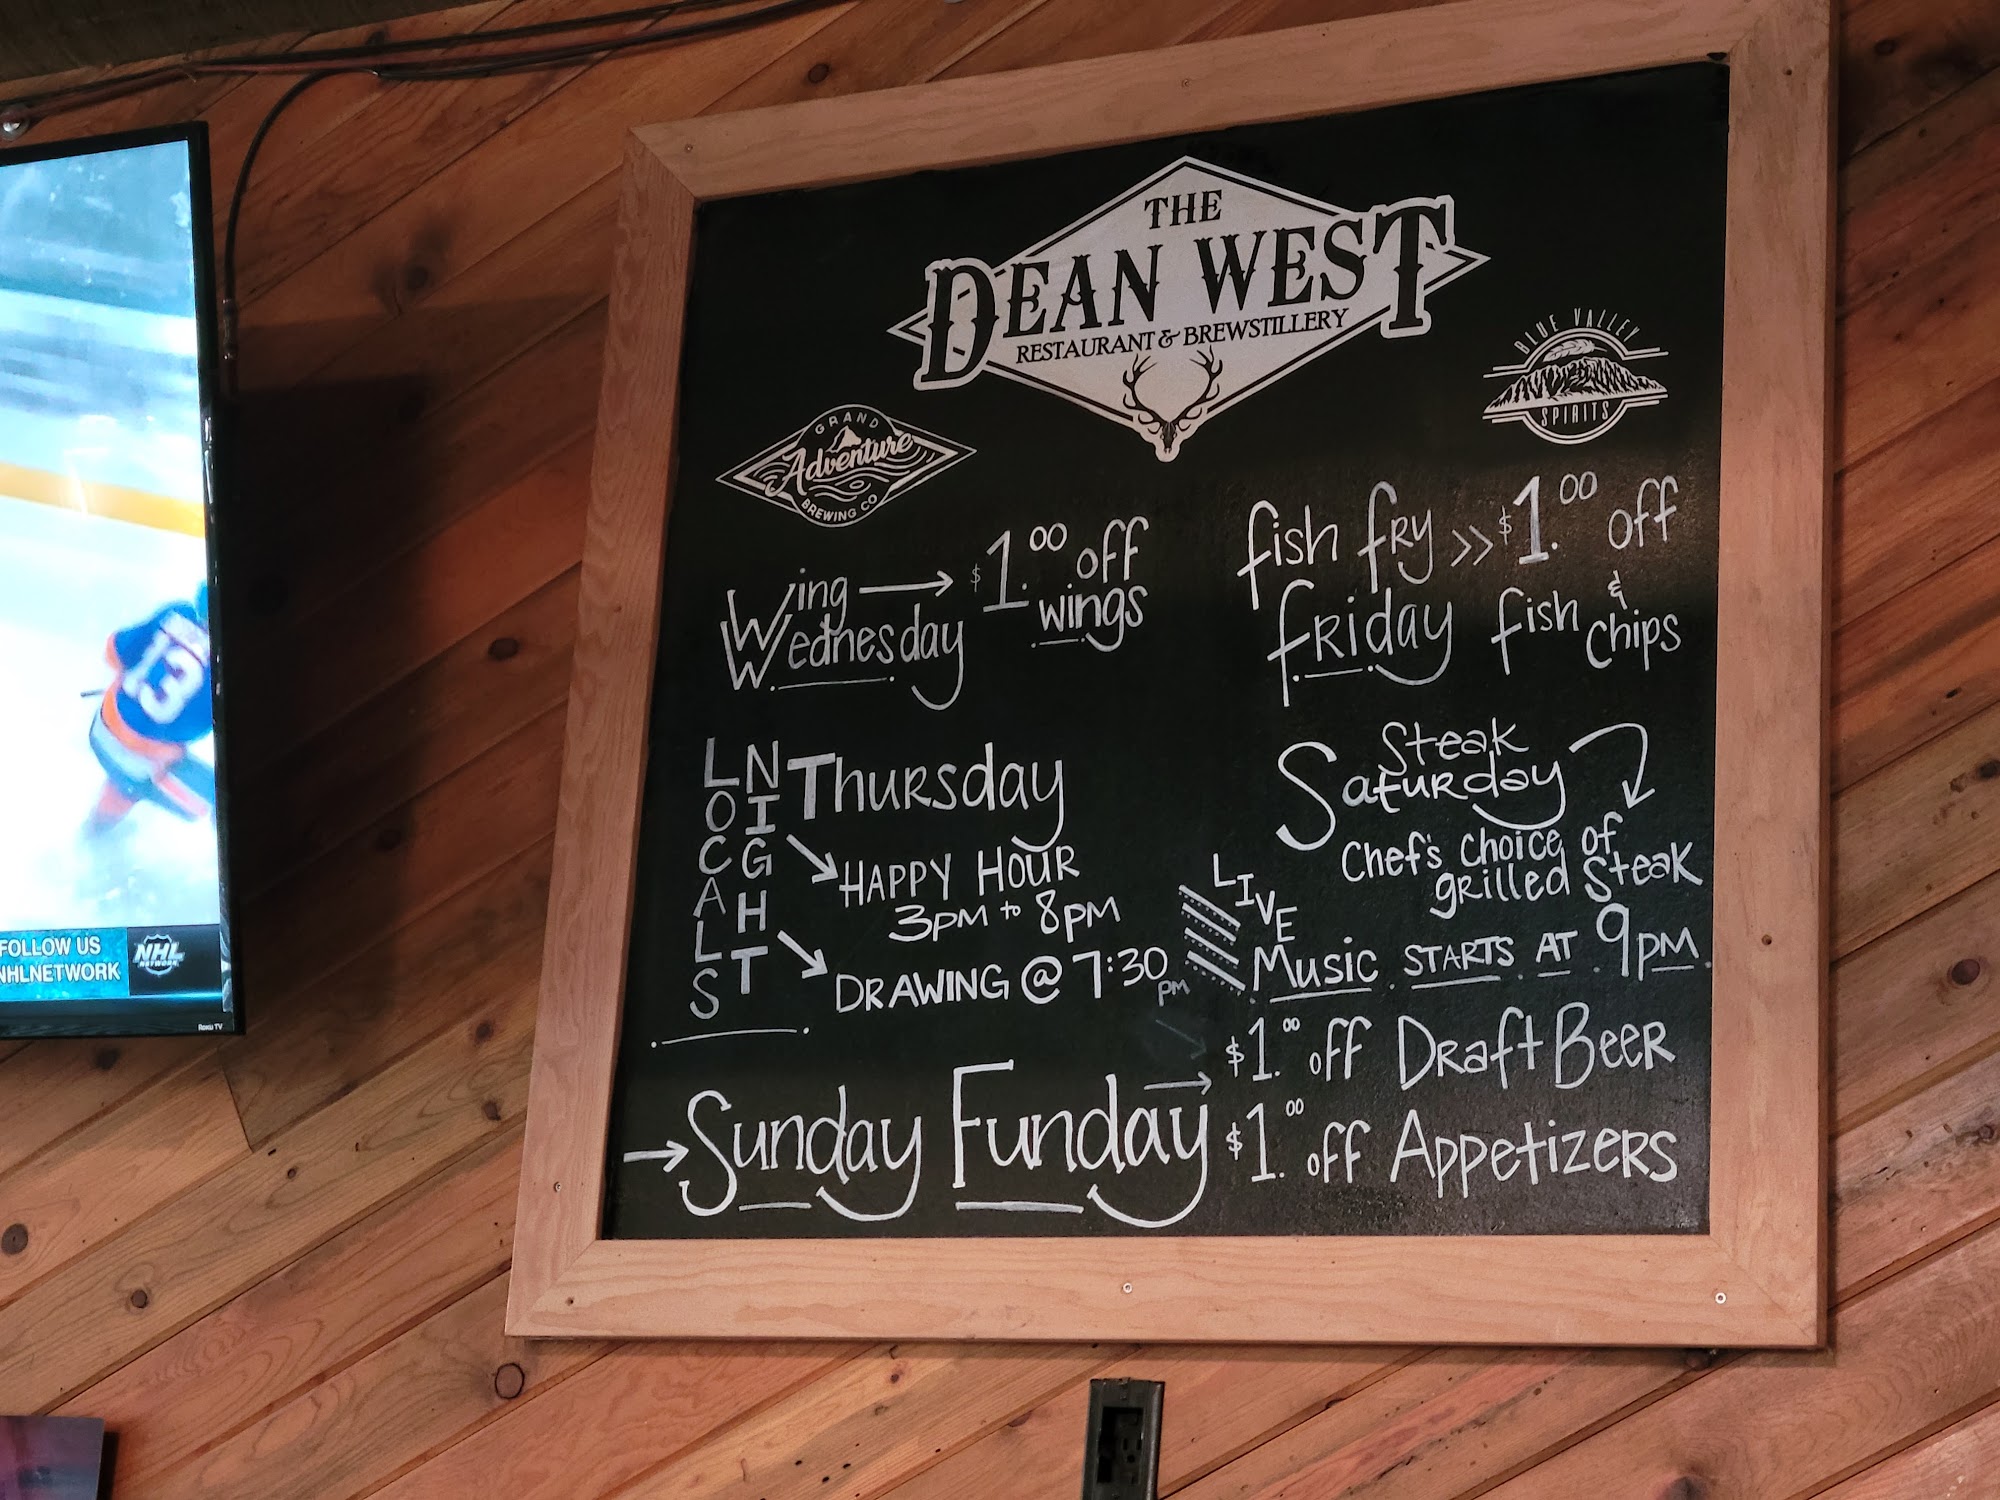 THE
DEAN WEST
RESTAURANT & BREWSTILLERY
GRAND
Adventure
BREWING CO
BLUE VALLEY
SPIRITS
Wing → $1.00 off
Wednesday wings
fish fRy >> $1.00 off
fRiday fish & chips
LOCALS
NIGHT
Thursday
HAPPY HOUR
3PM to 8PM
DRAWING @ 7:30 PM
Steak
Saturday
Chef's choice of
grilled Steak
LIVE
Music STARTS AT 9PM
→ Sunday Funday →
$1.00 off Draft Beer
$1.00 off Appetizers
13
FOLLOW US
NHLNETWORK
NHL
NETWORK
Roku TV